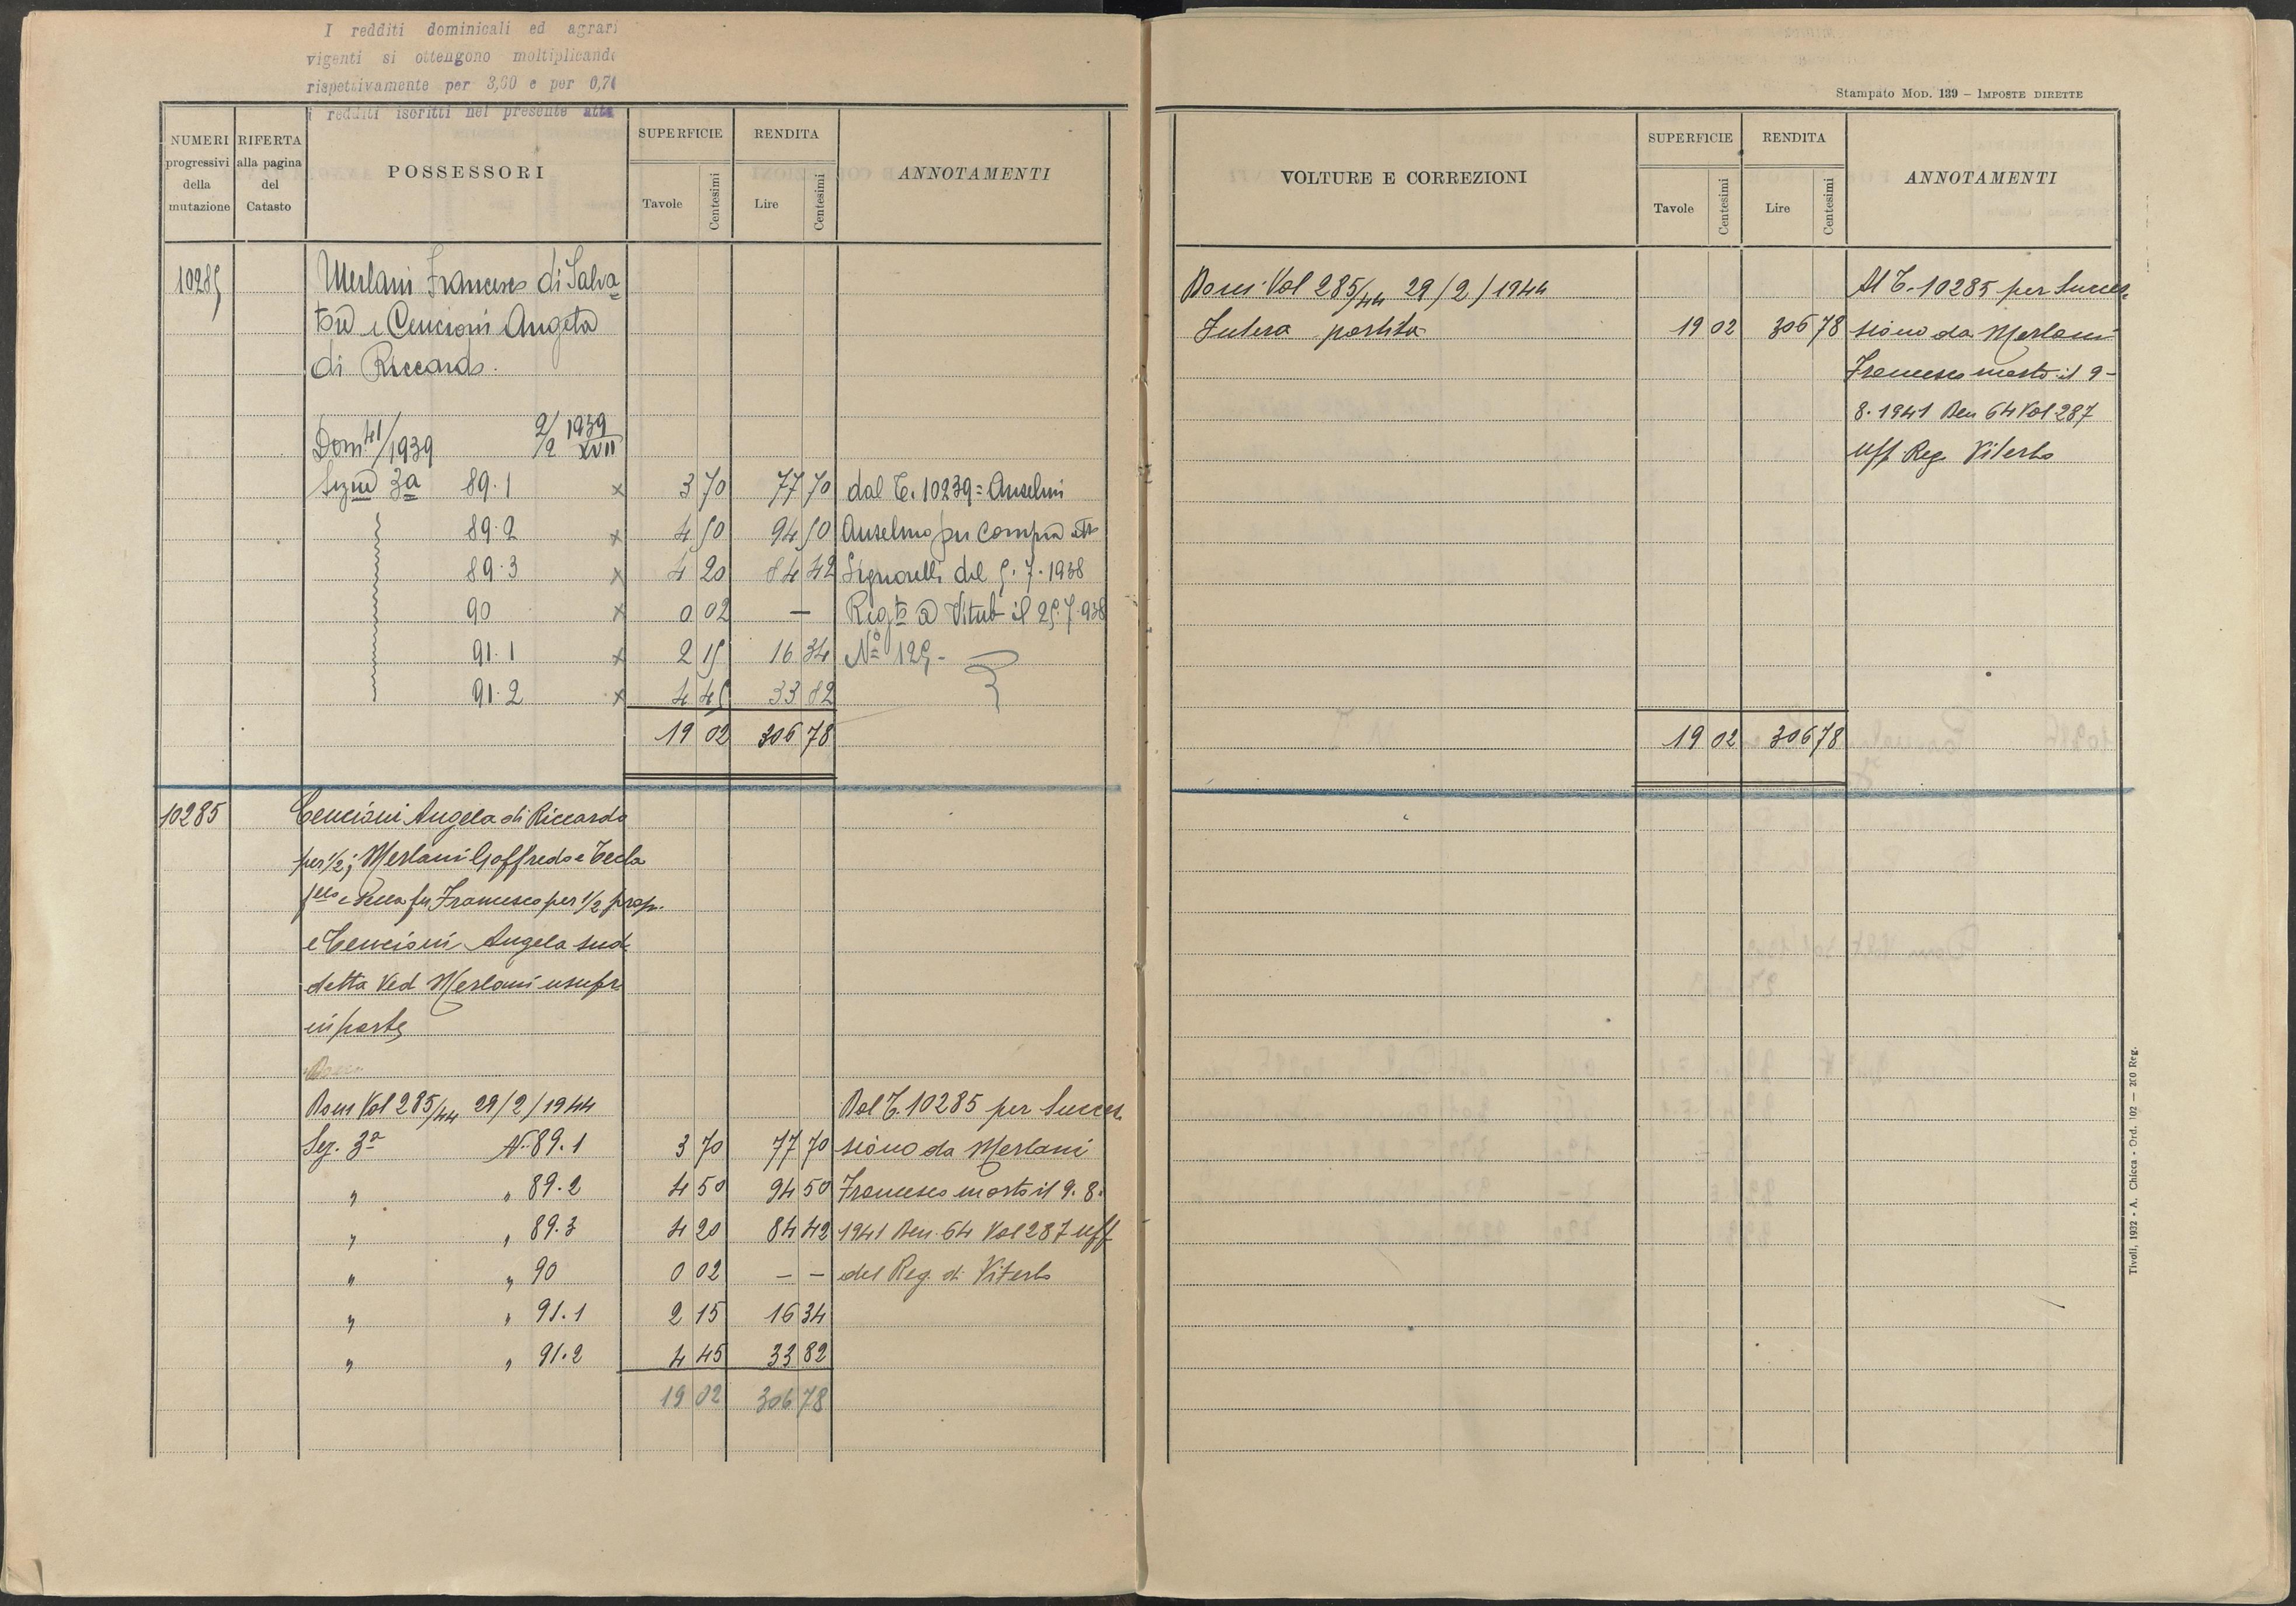 I redditi dominicali ed agrari
vigenti si ottengono moltiplicando
rispettivamente per 3,60 e per 0,70
i redditi iscritti nel presente atto
NUMERI progressivi della mutazione
RIFERTA alla pagina del Catasto
POSSESSORI
SUPERFICIE
Tavole Centesimi
RENDITA
Lire Centesimi
ANNOTAMENTI
10285 Merlani Francesco di Salva=
tore e Cencioni Angela
di Riccardo.
Dom. 41/1939 2/2 1939 XVII
Sezne 3a 89.1 x 3 70 77 70 dal C. 10239 = Anselmi
89.2 x 4 50 94 50 Anselmo per compra atto
89.3 x 4 20 84 42 Signorelli del 5.7.1938
90 x 0 02 — Regto a Viterb il 25.7.938
91.1 x 2 15 16 34 No 125 -
91.2 x 4 45 33 82
19 02 306 78
10285 Cencioni Angela di Riccardo
per 1/2; Merlani Goffredo e Tecla
fllo e Sella fu Francesco per 1/2 prop.
e Cencioni Angela sud
detta Ved Merlani usufr
in parte
Dom Vol 285/44 29/2/1944 Dal C. 10285 per Succes
Sez. 3a N. 89.1 3 70 77 70 sione da Merlani
" " 89.2 4 50 94 50 Francesco morto il 9.8.
" " 89.3 4 20 84 42 1941 Den. 64 Vol 287 Uff
" " 90 0 02 — — del Reg. di Viterbo
" " 91.1 2 15 16 34
" " 91.2 4 45 33 82
19 02 306 78
Stampato Mod. 139 – IMPOSTE DIRETTE
VOLTURE E CORREZIONI
SUPERFICIE
Tavole Centesimi
RENDITA
Lire Centesimi
ANNOTAMENTI
Dom Vol 285/44 29/2/1944 Al C. 10285 per Succes
Intera partita 19 02 306 78 sione da Merlani
Francesco morto il 9-
8.1941 Den 64 Vol 287
Uff Reg Viterbo
19 02 306 78
Tivoli, 1932 - A. Chicca - Ord. 102 — 200 Reg.